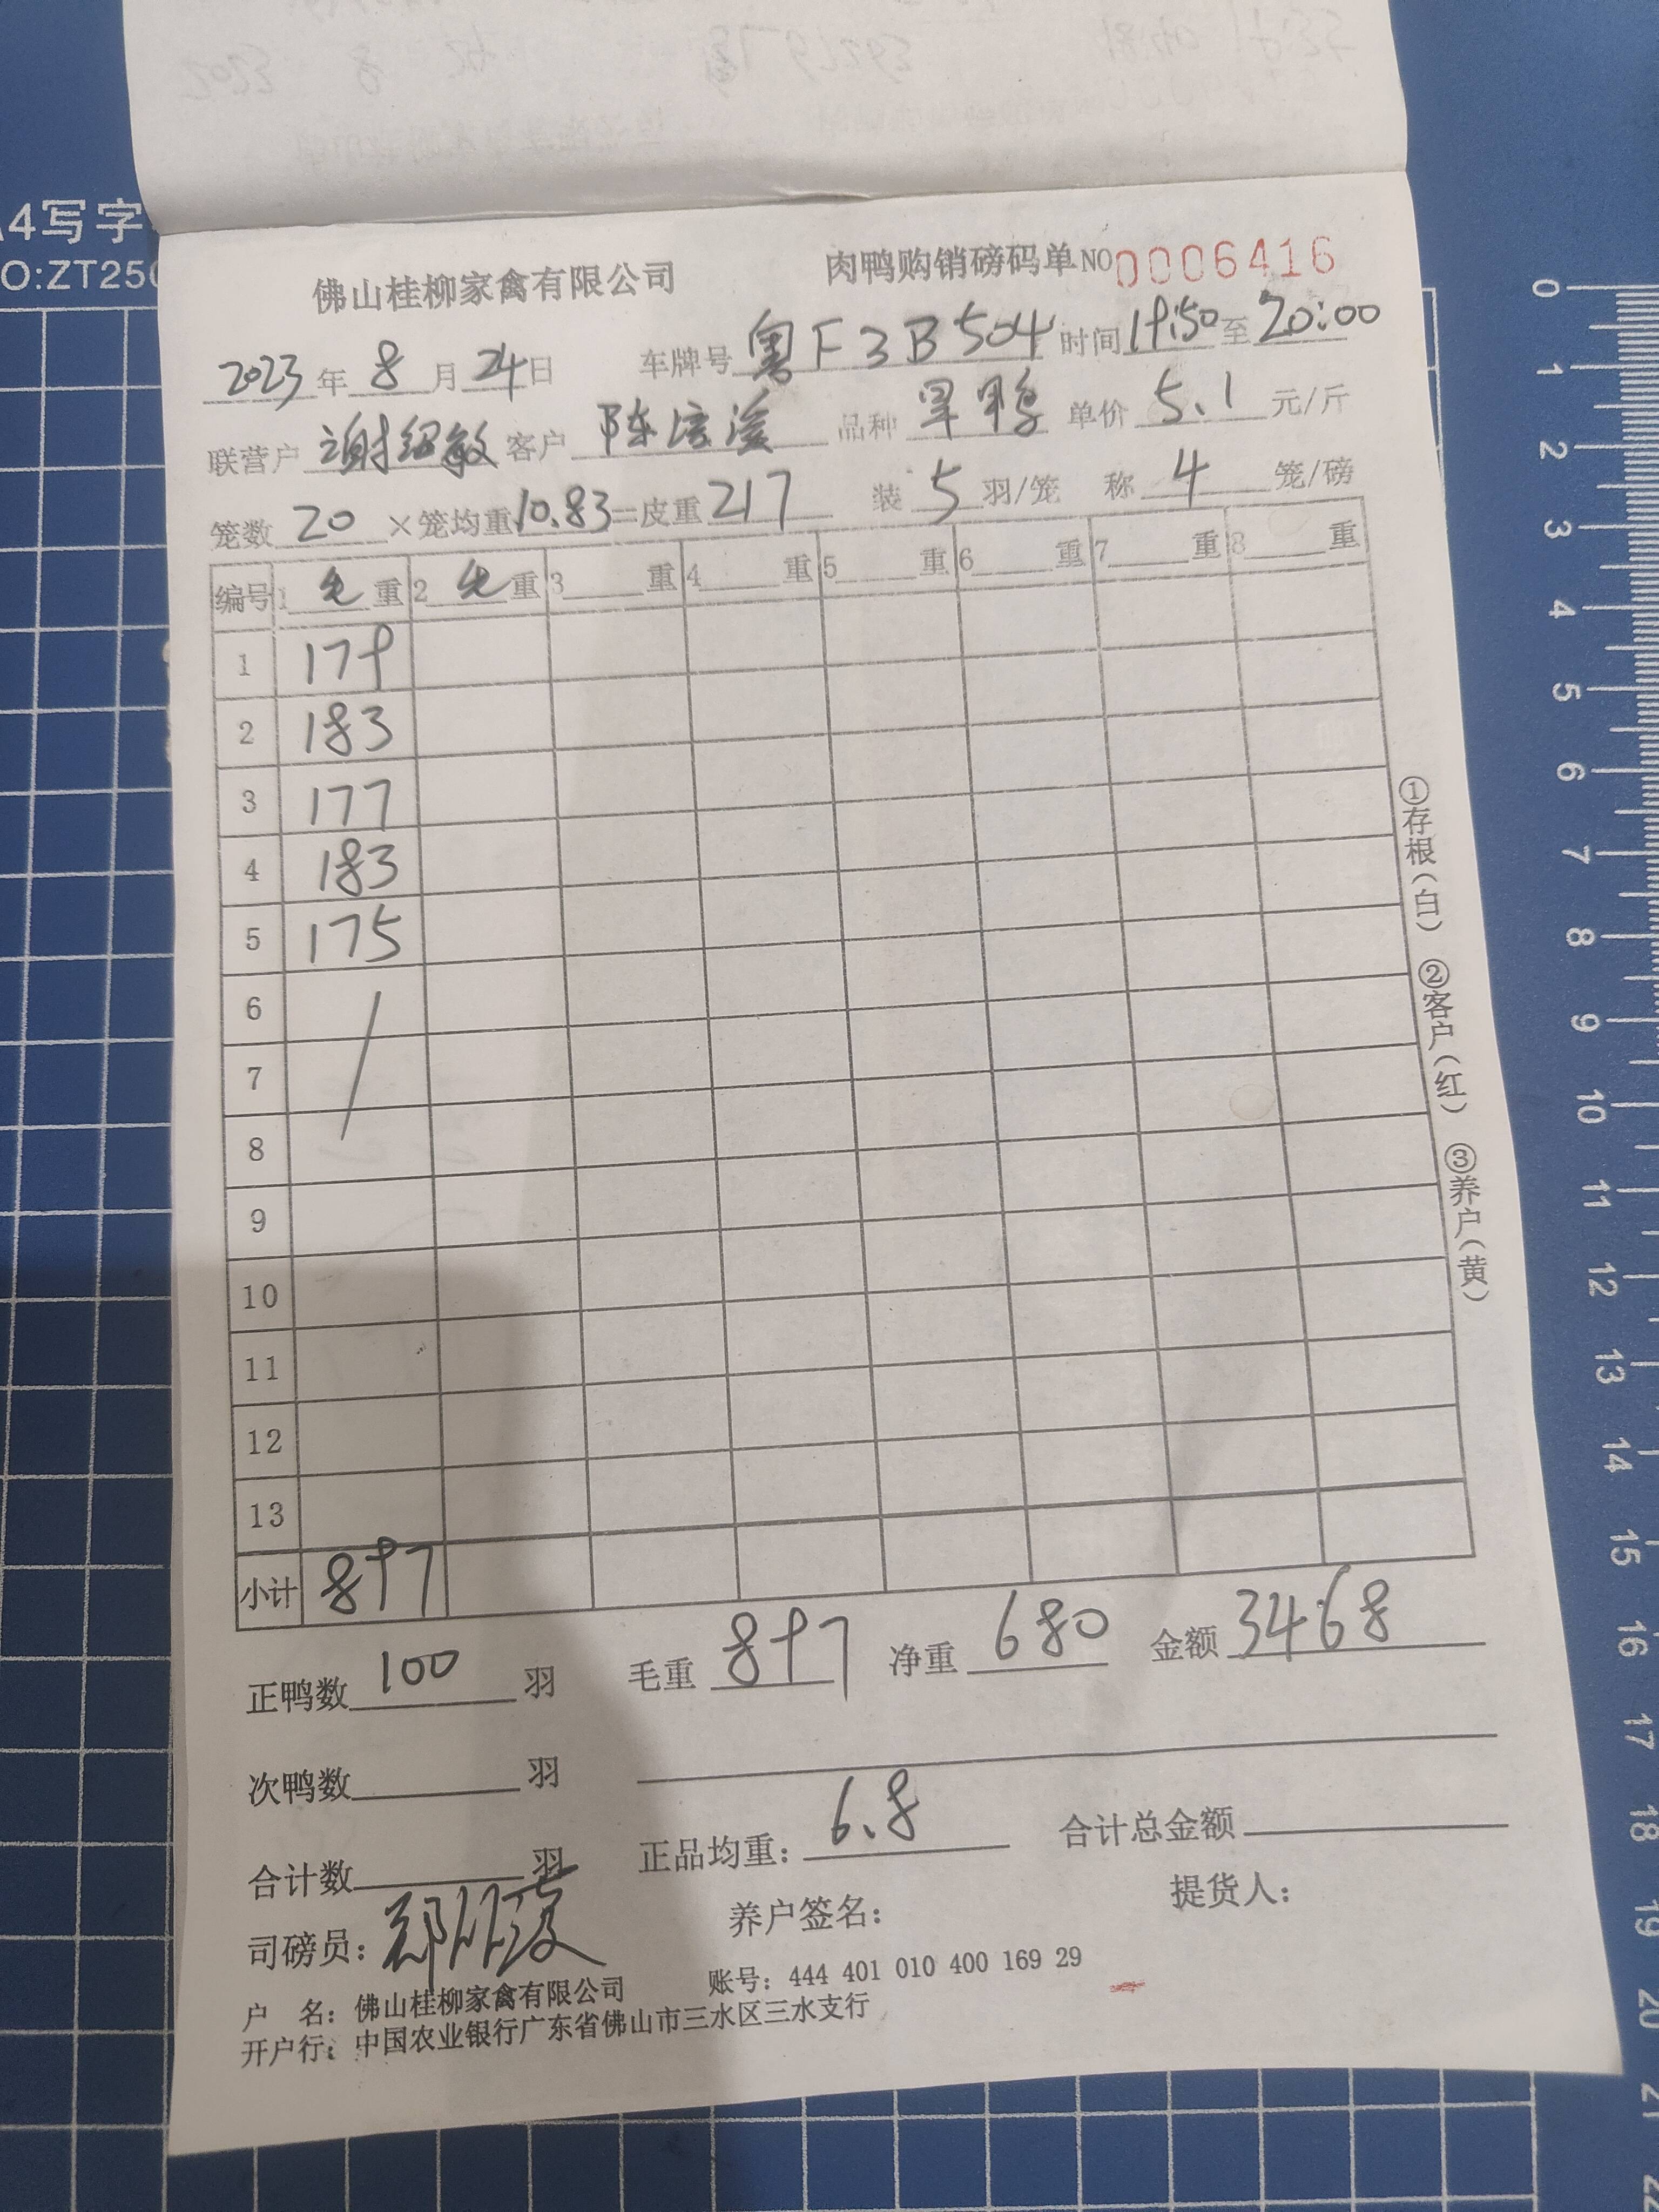 A4写字
NO:ZT250
佛山桂柳家禽有限公司 肉鸭购销磅码单 NO 0006416
2023年8月24日 车牌号 粤F3B504 时间 19:50 至 20:00
联营户 谢绍敏 客户 陈 品种 旱鸭 单价 5.1 元/斤
笼数 20 ×笼均重 10.83 =皮重 217 装 5 羽/笼 称 4 笼/磅
编号 1 毛重 2 毛重 3 重 4 重 5 重 6 重 7 重 8 重
1 179
2 183
3 177
4 183
5 175
6
7
8
9
10
11
12
13
小计 897
正鸭数 100 羽 毛重 897 净重 680 金额 3468
次鸭数 羽
合计数 羽 正品均重: 6.8 合计总金额
司磅员: 郑 养户签名: 提货人:
户 名: 佛山桂柳家禽有限公司 账号: 444 401 010 400 169 29
开户行: 中国农业银行广东省佛山市三水区三水支行
①存根(白) ②客户(红) ③养户(黄)
0
1
2
3
4
5
6
7
8
9
10
11
12
13
14
15
16
17
18
19
20
21
22